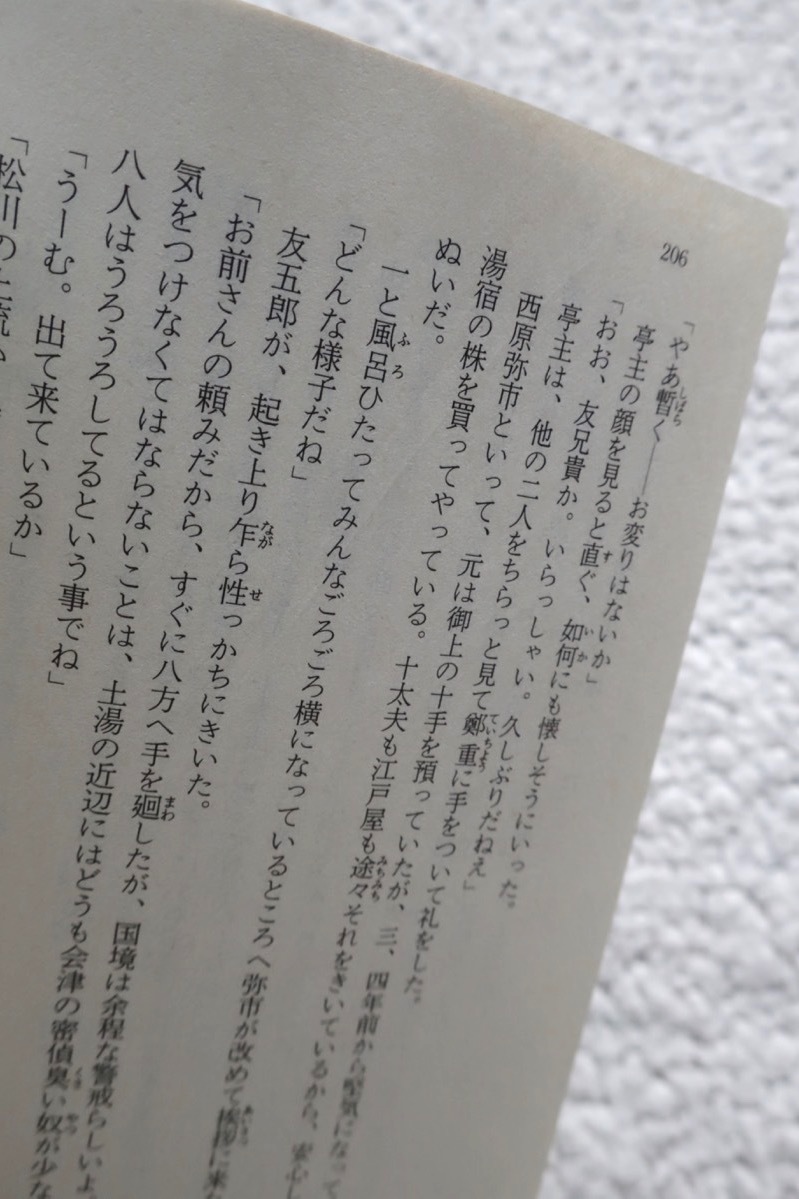 206
「やあ暫く――お変りはないか」
亭主の顔を見ると直ぐ、如何にも懐しそうにいった。
「おお、友兄貴か。いらっしゃい。久しぶりだねえ」
亭主は、他の二人をちらっと見て鄭重に手をついて礼をした。
西原弥市といって、元は御上の十手を預っていたが、三、四年前から堅気になって
湯宿の株を買ってやっている。十太夫も江戸屋も途々それをきいているから、安心し
ぬいだ。
一と風呂ひたってみんなごろごろ横になっているところへ弥市が改めて挨拶に来
「どんな様子だね」
友五郎が、起き上り乍ら性っかちにきいた。
「お前さんの頼みだから、すぐに八方へ手を廻したが、国境は余程な警戒らしいよ
気をつけなくてはならないことは、土湯の近辺にはどうも会津の密偵臭い奴が少な
八人はうろうろしてるという事でね」
「うーむ。出て来ているか」
「松川の上流